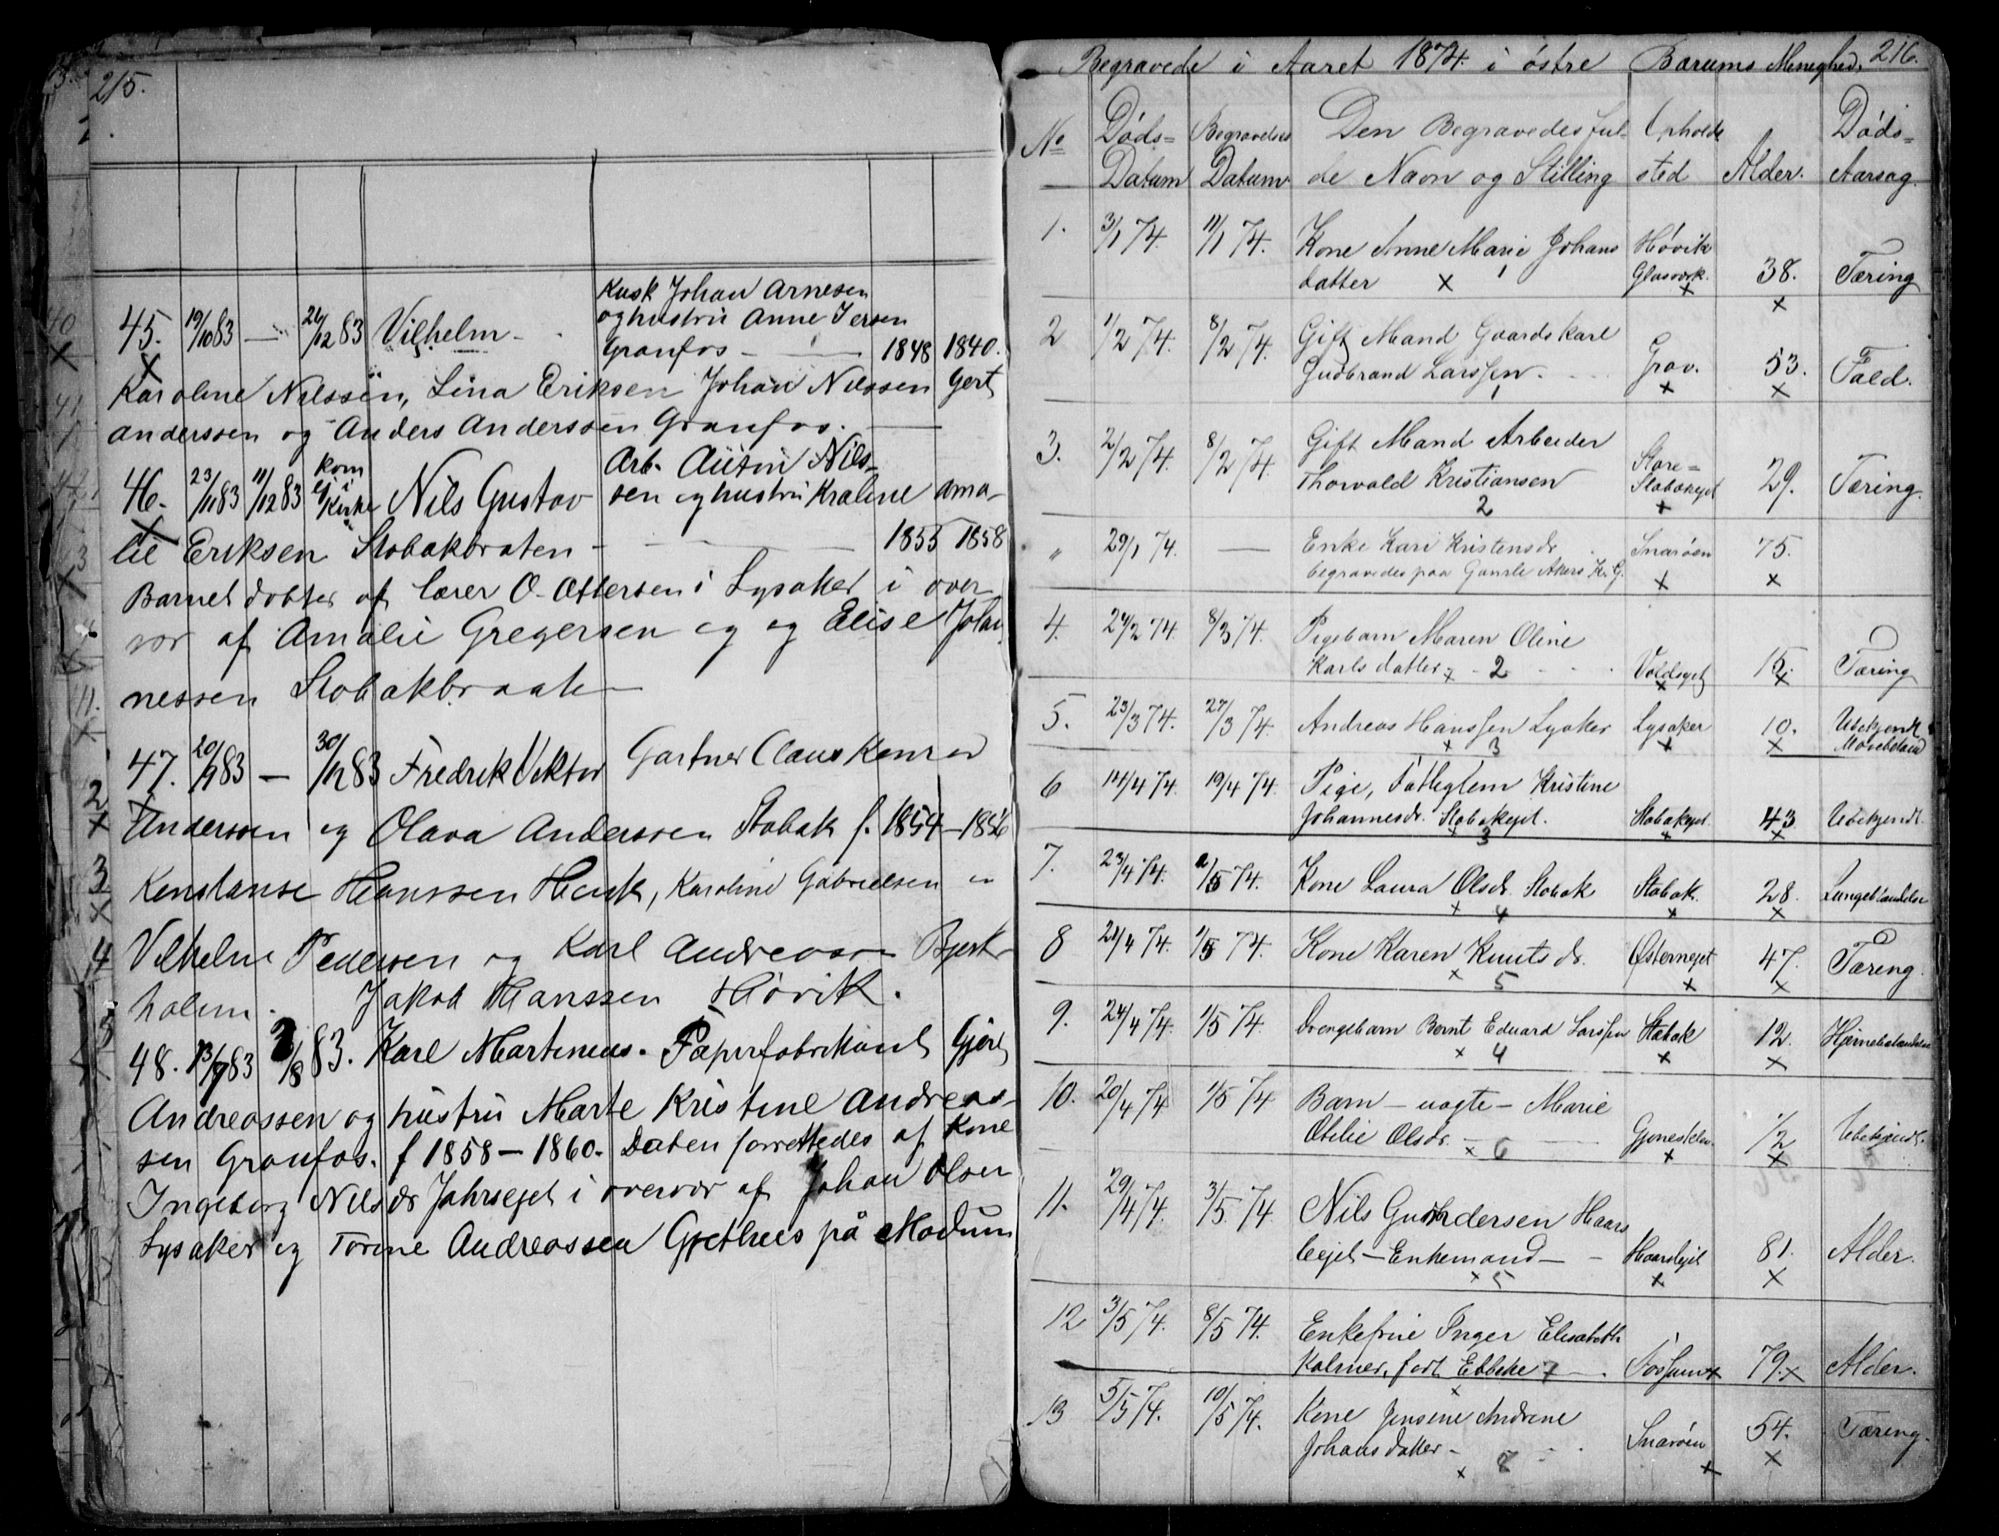 215.
45. 19/10 83 — 26/12 83 Vilhelm - Kusk Johan Arnesen
og hustru Anne Iersen
Granfos - — 1848 1840.
Karoline Nilssen, Lina Eriksen Johan Nilssen Gert
anderssen og Anders Anderssen Granfos. —
46. 23/11 83 11/12 83 kom ei i Kirke Nils Gustav Arb. Nils-
sen og hustru Kraline ama-
lie Eriksen Stobakbraten - — 1855 1858
Barnet døbtes af lærer O. Ottersen i Lysaker i over
vær af Amalie Gregersen og og Elise Johan
nessen Stobakbraate
47. 20/9 83 — 30/12 83 Fredrik Viktor Gartner Claus Konrad
Anderssen og Olava Anderssen Stabak f. 1854 - 1856
Konstanse Hanssen Hauk, Karoline Gabrielsen —
Vilhelm Pedersen og Karl Andreass Bjerk
holm. Jakob Hanssen Høvik.
48. 13/7 83 3/8 83. Karl Martineus. Papirfabrikant Gjert
Andreassen og hustru Marte Kristine Andreas-
sen Granfos. f 1858 - 1860. Daaben forrettedes af Kone
Ingeborg Nilsdr Jahrsejet i overvær af Johan Olsen
Lysaker og Torine Andreassen Gjethus på Modum
Begravede i Aaret 1874. i østre Bærums Menighed. 216.
No Døds= Datum Begravelses Datum Den Begravedes ful- de Navn og Stilling Opholds sted Alder. Døds= Aarsag.
1. 3/1 74. 11/1 74. Kone Anne Marie Johans Høvik
datter x 1 Glasværk. x 38. x Tæring
2 1/2 74. 8/2 74. Gift Mand Gaardskarl
Gudbrand Larssen. 1 Grav. x 53. x Fald.
3. 2/2 74. 8/2 74. Gift Mand Arbeider Store=
Thorvald Kristiansen 2 Stabakejet x 29. Tæring.
" 29/1 74. — Enke Kari Kristensdr. Snarøen 75.
begravedes paa Gamle Akers K. G. x x
4. 24/2 74. 8/3 74. Pigebarn Maren Oline
Karlsdatter x - 2 - Voldsejet x 15. x Tæring
5. 23/3 74. 27/3 74. Andreas Hanssen Lysaker Lysaker 10. Ubekjendt
x 3 x x
6 14/4 74. 19/4 74. Pige, Fattiglem Kristine
Johannesdr. Stabakejet. 3 Stabakejet. x 43 x Ubekjendt.
7. 23/4 74. 2/5 74. Kone Laura Olsdr. Stabak Stabak. 28. Lungebetændelse
x 4 x x
8 24/4 74. 1/5 74. Kone Karen Knutsdr. Østernejet 47. Tæring.
x 5 x x
9. 24/4 74. 1/5 74. Drengebarn Bernt Eduard Larssen Stabak 12. Hjernebetændelse
x 4 x x
10. 20/4 74 1/5 74 Barn - uægte - Marie
Otilie Olsdr. - x 6 x 1/2 x Ubekjendt.
11. 29/4 74. 3/5 74 Nils Gundersen Haars
lejet - Enkemand - - Haarslejet 81. Alder.
x 5 x x
12 3/5 74. 8/5 74. Enkefrue Inger Elisabeth
Kolrner, født Ebbeke 7 —. Fossum x 79. x Alder.
13 5/5 74. 10/5 74. Kone Jensine Andrine
Johansdatter - x 8 Snarøen x 54. x Tæring.